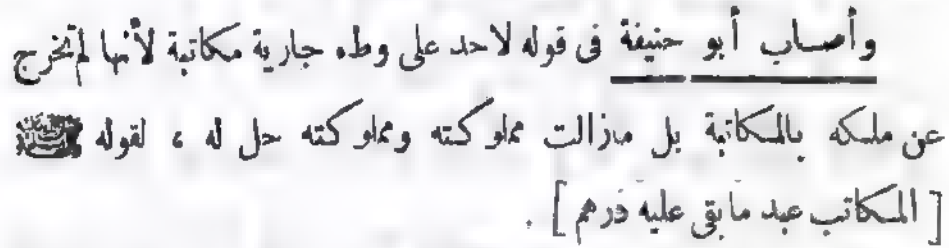 وأصاب أبو حنيفة فى قوله لاحد على وطء جارية مكاتبة لأنها لم تخرج
عن ملكه بالمكاتبة بل مازالت مملوكته ومملوكته حل له ، لقوله ﷺ
[ المكاتب عبد ما بقى عليه درهم ] .